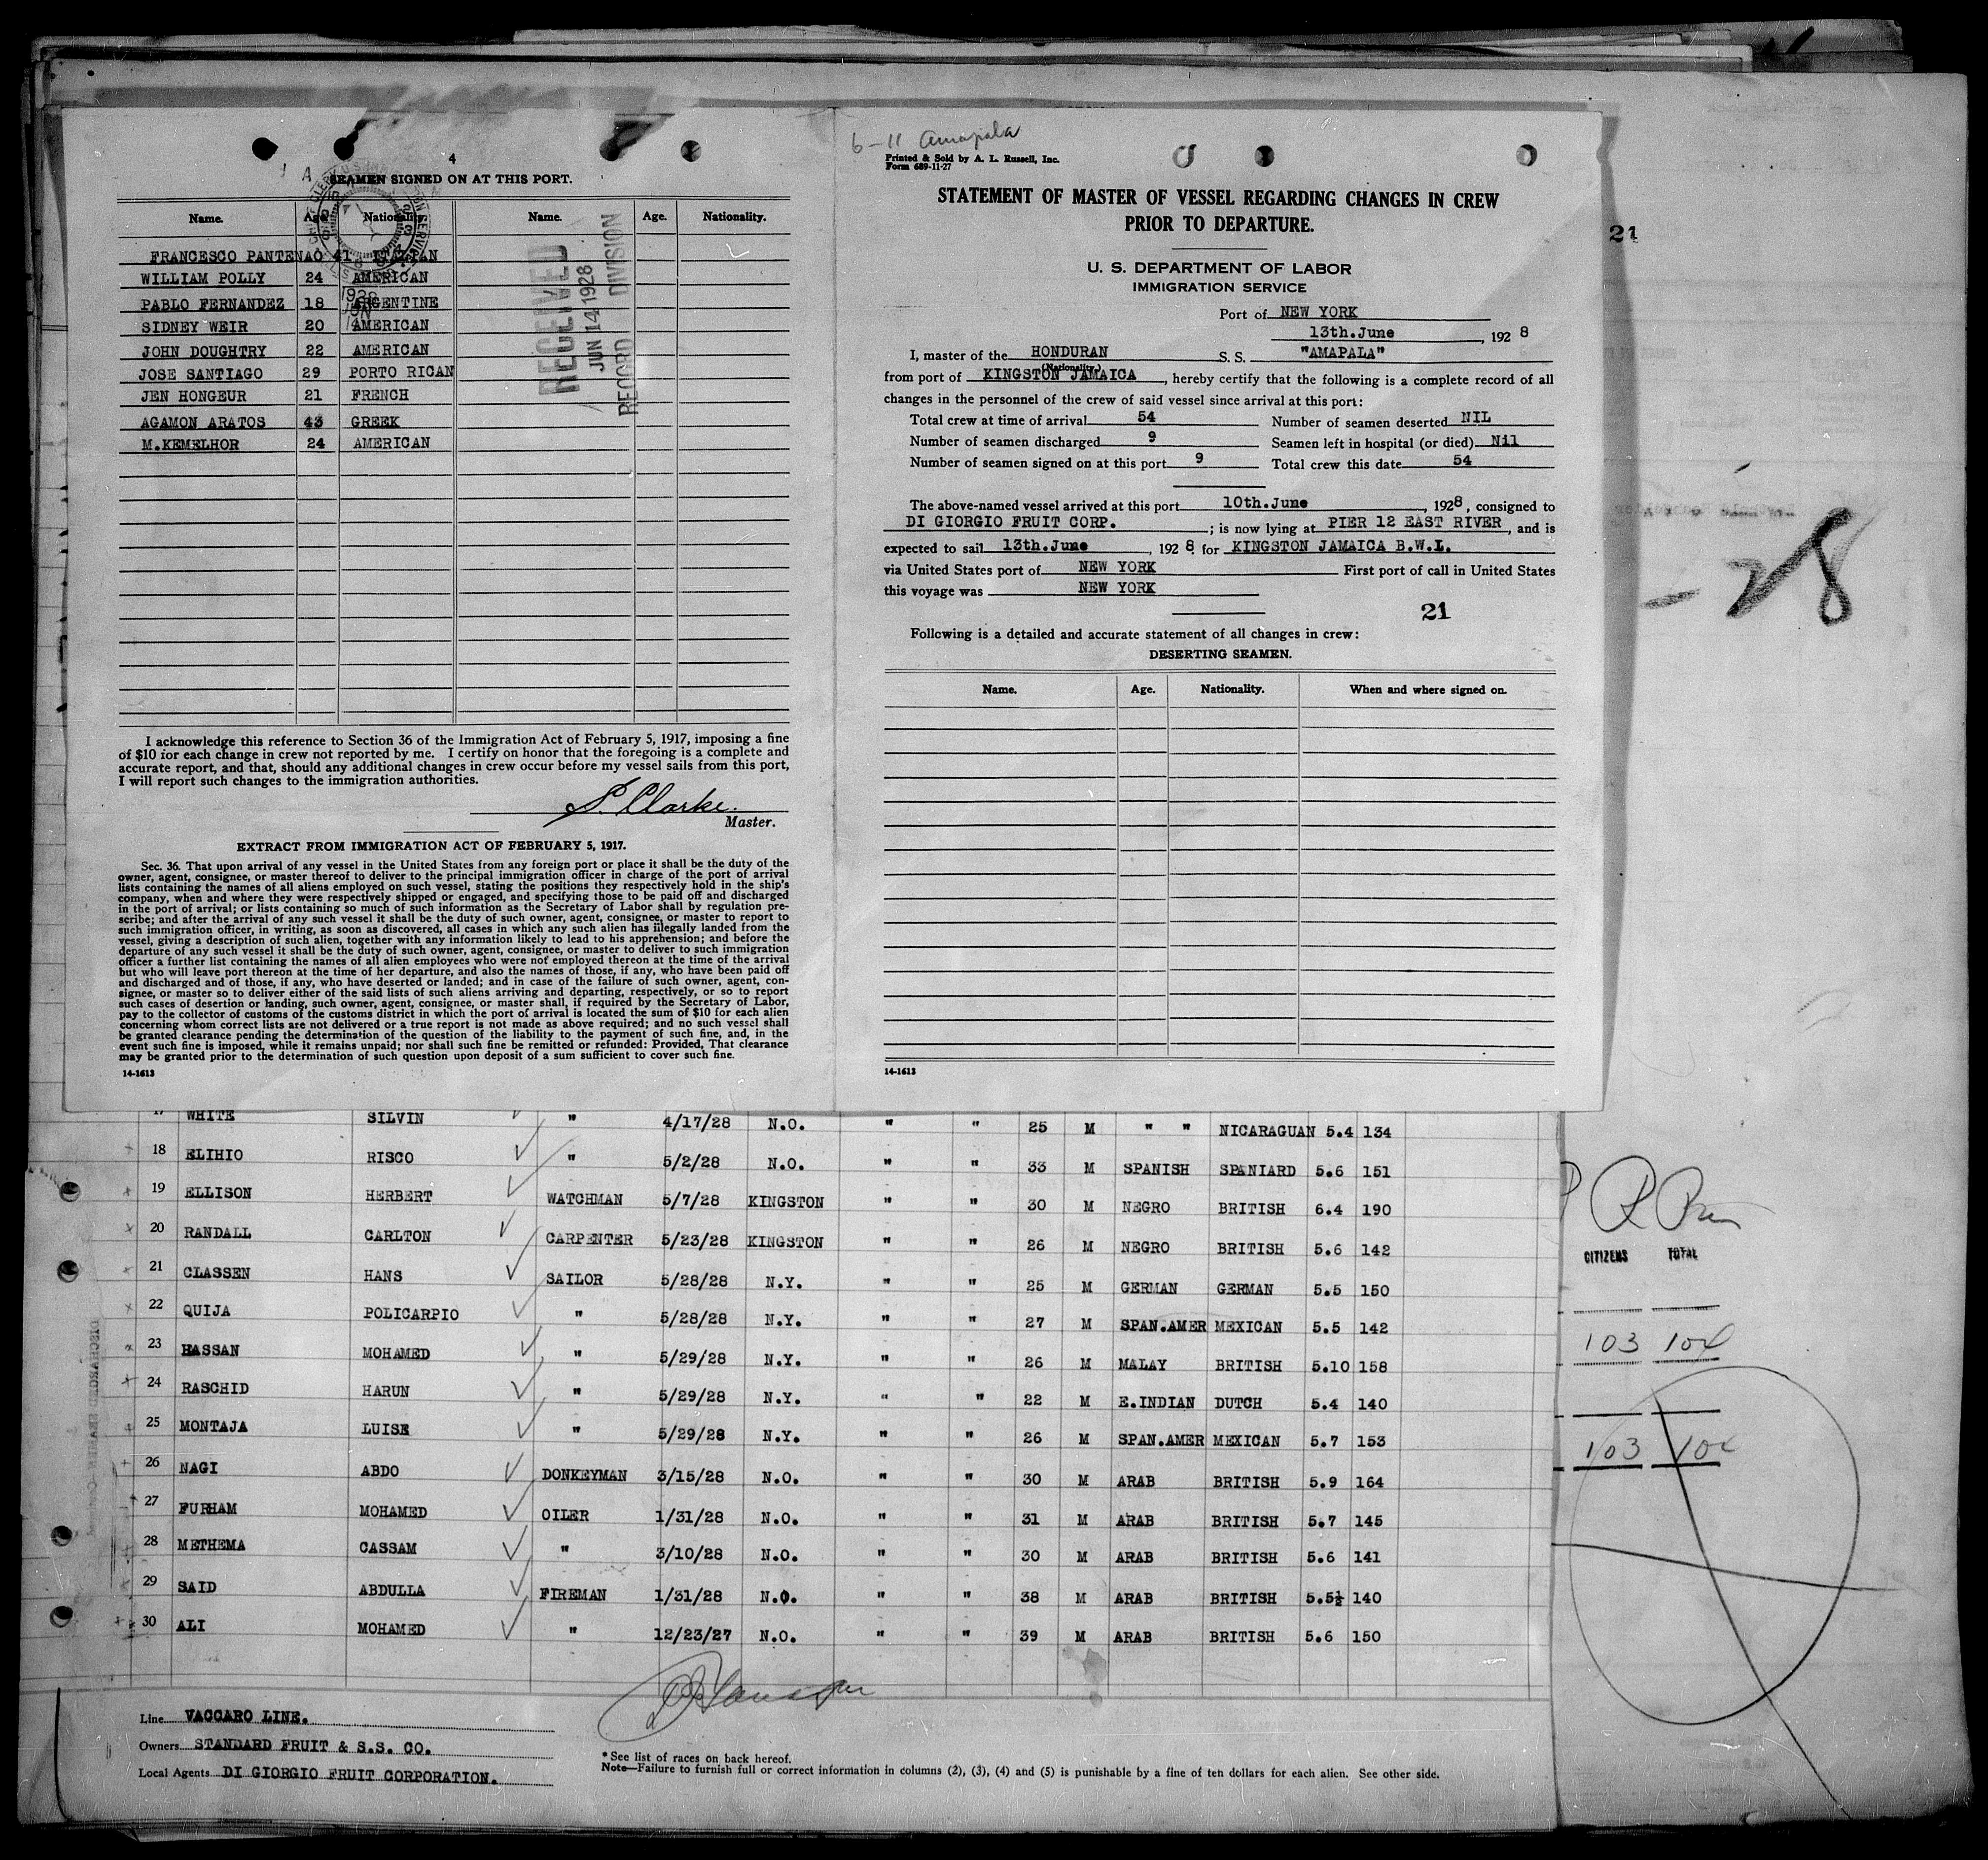 4
SEAMEN SIGNED ON AT THIS PORT.
Name. Age. Nationality. Name. Age. Nationality.
FRANCESCO PANTENAO 41. ITALIAN
WILLIAM POLLY 24 AMERICAN
PABLO FERNANDEZ 18 ARGENTINE
SIDNEY WEIR 20 AMERICAN
JOHN DOUGHTRY 22 AMERICAN
JOSE SANTIAGO 29 PORTO RICAN
JEN HONGEUR 21 FRENCH
AGAMON ARATOS 43 GREEK
M.KEMELHOR 24 AMERICAN
RECEIVED
JUN 14 1928
RECORD DIVISION
I acknowledge this reference to Section 36 of the Immigration Act of February 5, 1917, imposing a fine
of $10 for each change in crew not reported by me. I certify on honor that the foregoing is a complete and
accurate report, and that, should any additional changes in crew occur before my vessel sails from this port,
I will report such changes to the immigration authorities.
S. Clarke.
Master.
EXTRACT FROM IMMIGRATION ACT OF FEBRUARY 5, 1917.
Sec. 36. That upon arrival of any vessel in the United States from any foreign port or place it shall be the duty of the
owner, agent, consignee, or master thereof to deliver to the principal immigration officer in charge of the port of arrival
lists containing the names of all aliens employed on such vessel, stating the positions they respectively hold in the ship's
company, when and where they were respectively shipped or engaged, and specifying those to be paid off and discharged
in the port of arrival; or lists containing so much of such information as the Secretary of Labor shall by regulation pre-
scribe; and after the arrival of any such vessel it shall be the duty of such owner, agent, consignee, or master to report to
such immigration officer, in writing, as soon as discovered, all cases in which any such alien has illegally landed from the
vessel, giving a description of such alien, together with any information likely to lead to his apprehension; and before the
departure of any such vessel it shall be the duty of such owner, agent, consignee, or master to deliver to such immigration
officer a further list containing the names of all alien employees who were not employed thereon at the time of the arrival
but who will leave port thereon at the time of her departure, and also the names of those, if any, who have been paid off
and discharged and of those, if any, who have deserted or landed; and in case of the failure of such owner, agent, con-
signee, or master so to deliver either of the said lists of such aliens arriving and departing, respectively, or so to report
such cases of desertion or landing, such owner, agent, consignee, or master shall, if required by the Secretary of Labor,
pay to the collector of customs of the customs district in which the port of arrival is located the sum of $10 for each alien
concerning whom correct lists are not delivered or a true report is not made as above required; and no such vessel shall
be granted clearance pending the determination of the question of the liability to the payment of such fine, and, in the
event such fine is imposed, while it remains unpaid; nor shall such fine be remitted or refunded: Provided, That clearance
may be granted prior to the determination of such question upon deposit of a sum sufficient to cover such fine.
14-1613
6-11 Amapala
Printed & Sold by A. L. Russell, Inc.
Form 689-11-27
STATEMENT OF MASTER OF VESSEL REGARDING CHANGES IN CREW
PRIOR TO DEPARTURE.
U. S. DEPARTMENT OF LABOR
IMMIGRATION SERVICE
Port of NEW YORK
13th.June, 1928
I, master of the HONDURAN S. S. "AMAPALA"
(Nationality.)
from port of KINGSTON JAMAICA, hereby certify that the following is a complete record of all
changes in the personnel of the crew of said vessel since arrival at this port:
Total crew at time of arrival 54 Number of seamen deserted NIL
Number of seamen discharged 9 Seamen left in hospital (or died) Nil
Number of seamen signed on at this port 9 Total crew this date 54
The above-named vessel arrived at this port 10th.June, 1928, consigned to
DI GIORGIO FRUIT CORP. ; is now lying at PIER 12 EAST RIVER, and is
expected to sail 13th.June, 1928 for KINGSTON JAMAICA B.W.I.
via United States port of NEW YORK First port of call in United States
this voyage was NEW YORK
21
Following is a detailed and accurate statement of all changes in crew:
DESERTING SEAMEN.
Name. Age. Nationality. When and where signed on.
14-1613
21
- 28
17 WHITE SILVIN " 4/17/28 N.O. " " 25 M " " NICARAGUAN 5.4 134
18 ELIHIO RISCO " 5/2/28 N.O. " " 33 M SPANISH SPANIARD 5.6 151
19 ELLISON HERBERT WATCHMAN 5/7/28 KINGSTON " " 30 M NEGRO BRITISH 6.4 190
20 RANDALL CARLTON CARPENTER 5/23/28 KINGSTON " " 26 M NEGRO BRITISH 5.6 142
21 CLASSEN HANS SAILOR 5/28/28 N.Y. " " 25 M GERMAN GERMAN 5.5 150
22 QUIJA POLICARPIO " 5/28/28 N.Y. " " 27 M SPAN.AMER MEXICAN 5.5 142
23 HASSAN MOHAMED " 5/29/28 N.Y. " " 26 M MALAY BRITISH 5.10 158
24 RASCHID HARUN " 5/29/28 N.Y. " " 22 M E.INDIAN DUTCH 5.4 140
25 MONTAJA LUISE " 5/29/28 N.Y. " " 26 M SPAN.AMER MEXICAN 5.7 153
26 NAGI ABDO DONKEYMAN 3/15/28 N.O. " " 30 M ARAB BRITISH 5.9 164
27 FURHAM MOHAMED OILER 1/31/28 N.O. " " 31 M ARAB BRITISH 5.7 145
28 METHEMA CASSAM " 3/10/28 N.O. " " 30 M ARAB BRITISH 5.6 141
29 SAID ABDULLA FIREMAN 1/31/28 N.O. " " 38 M ARAB BRITISH 5.5½ 140
30 ALI MOHAMED " 12/23/27 N.O. " " 39 M ARAB BRITISH 5.6 150
Line VACCARO LINE.
Owners STANDARD FRUIT & S.S. CO.
Local Agents DI GIORGIO FRUIT CORPORATION.
* See list of races on back hereof.
Note—Failure to furnish full or correct information in columns (2), (3), (4) and (5) is punishable by a fine of ten dollars for each alien. See other side.
CITIZENS TOTAL
103 104
103 104